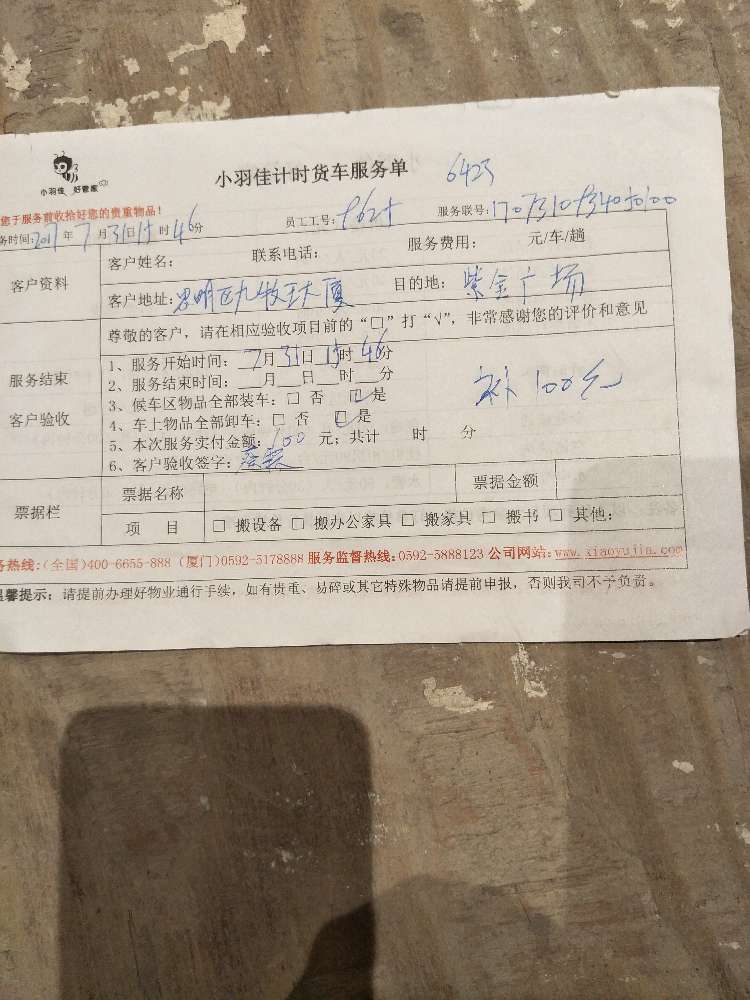 小羽佳 好管家
小羽佳计时货车服务单 6423
您于服务前收拾好您的贵重物品！
务时间:2017年7月31日15时46分 员工工号: 服务联号:
客户资料
客户姓名： 联系电话： 服务费用： 元/车/趟
客户地址：思明区九牧王大厦 目的地：紫金广场
服务结束
客户验收
尊敬的客户，请在相应验收项目前的“□”打“√”，非常感谢您的评价和意见
1、服务开始时间：7月31日15时46分
2、服务结束时间：__月__日__时__分
3、候车区物品全部装车：□ 否 ☑是
4、车上物品全部卸车：□ 否 ☑是
补100元
5、本次服务实付金额：100 元；共计 时 分
6、客户验收签字：
票据栏
票据名称 票据金额
项 目 □ 搬设备 □ 搬办公家具 □ 搬家具 □ 搬书 □ 其他：
务热线：(全国)400-6655-888 (厦门)0592-5178888 服务监督热线：0592-5888123 公司网站：www.xiaoyujia.com
温馨提示：请提前办理好物业通行手续，如有贵重、易碎或其它特殊物品请提前申报，否则我司不予负责。